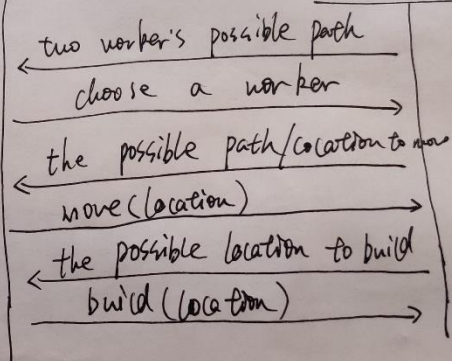 two worker's possible path
choose a worker
the possible path/location to move
move(location)
the possible location to build
build(location)